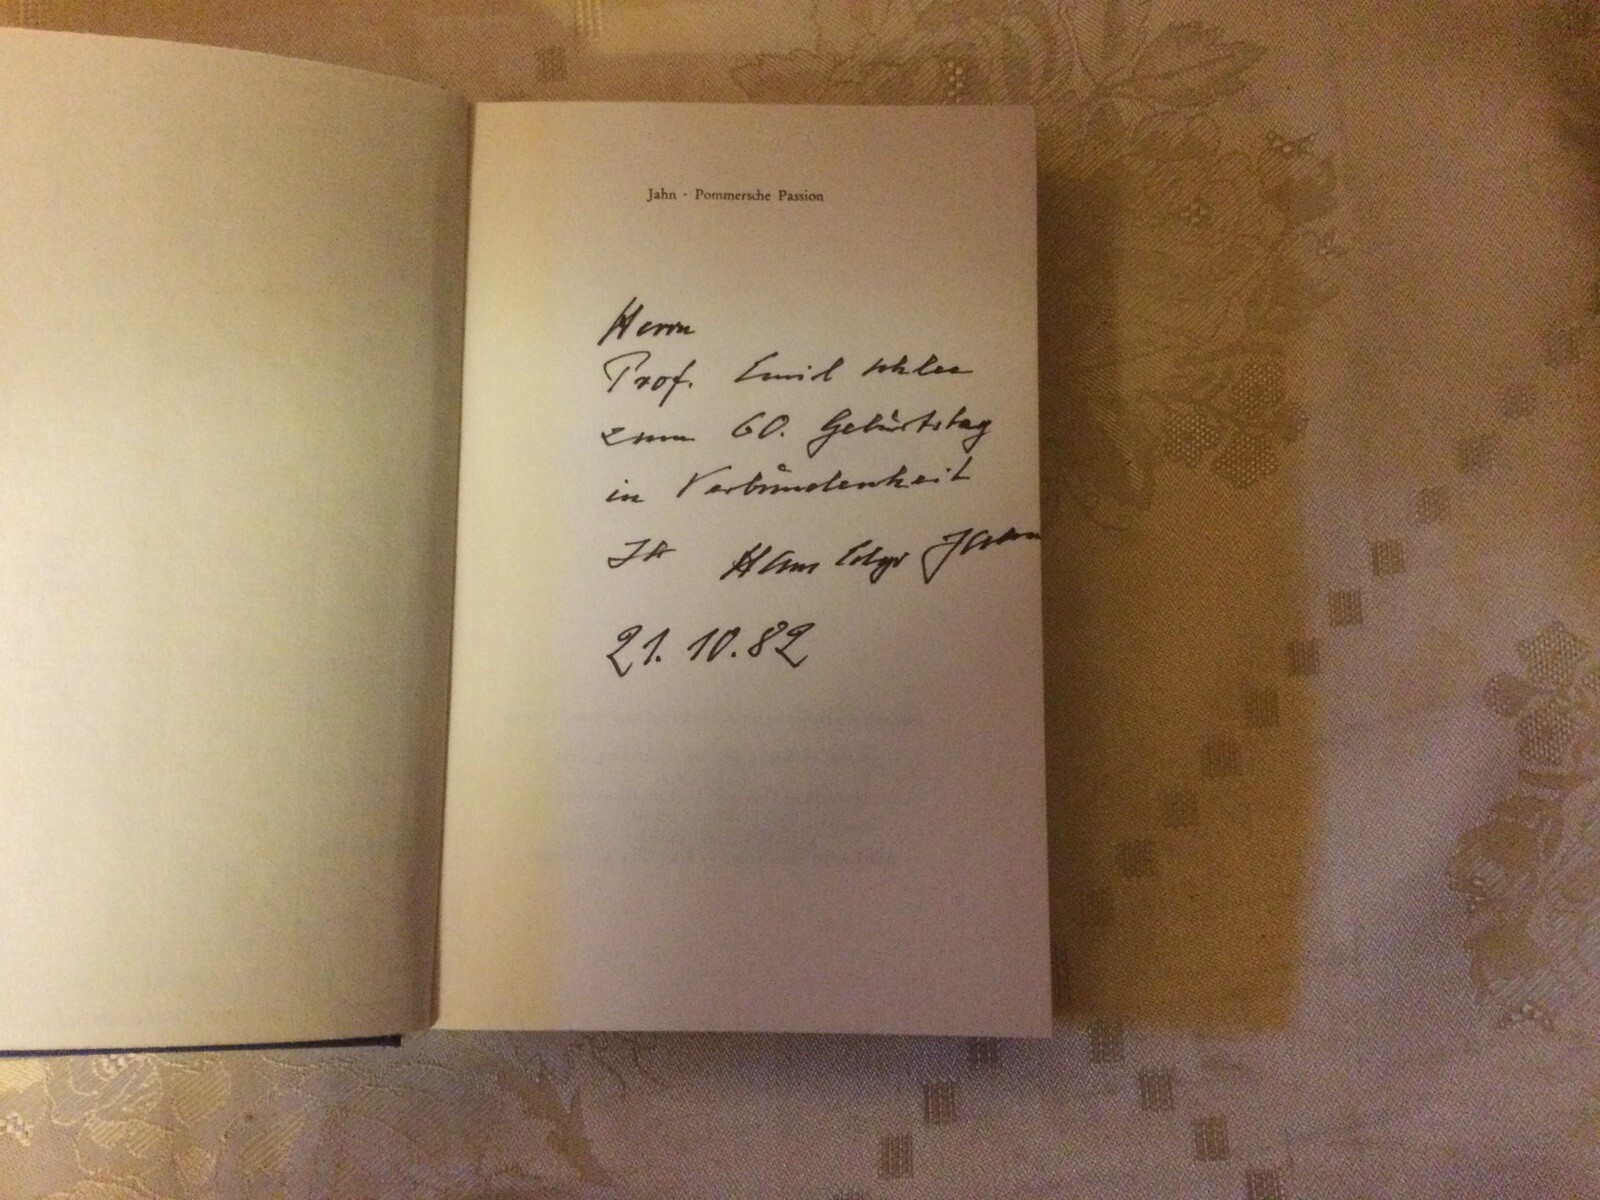 Jahn · Pommersche Passion
Herrn
Prof. Emil
zum 60. Geburtstag
in Verbundenheit
Ihr Hans Edgar Jahn
21. 10. 82